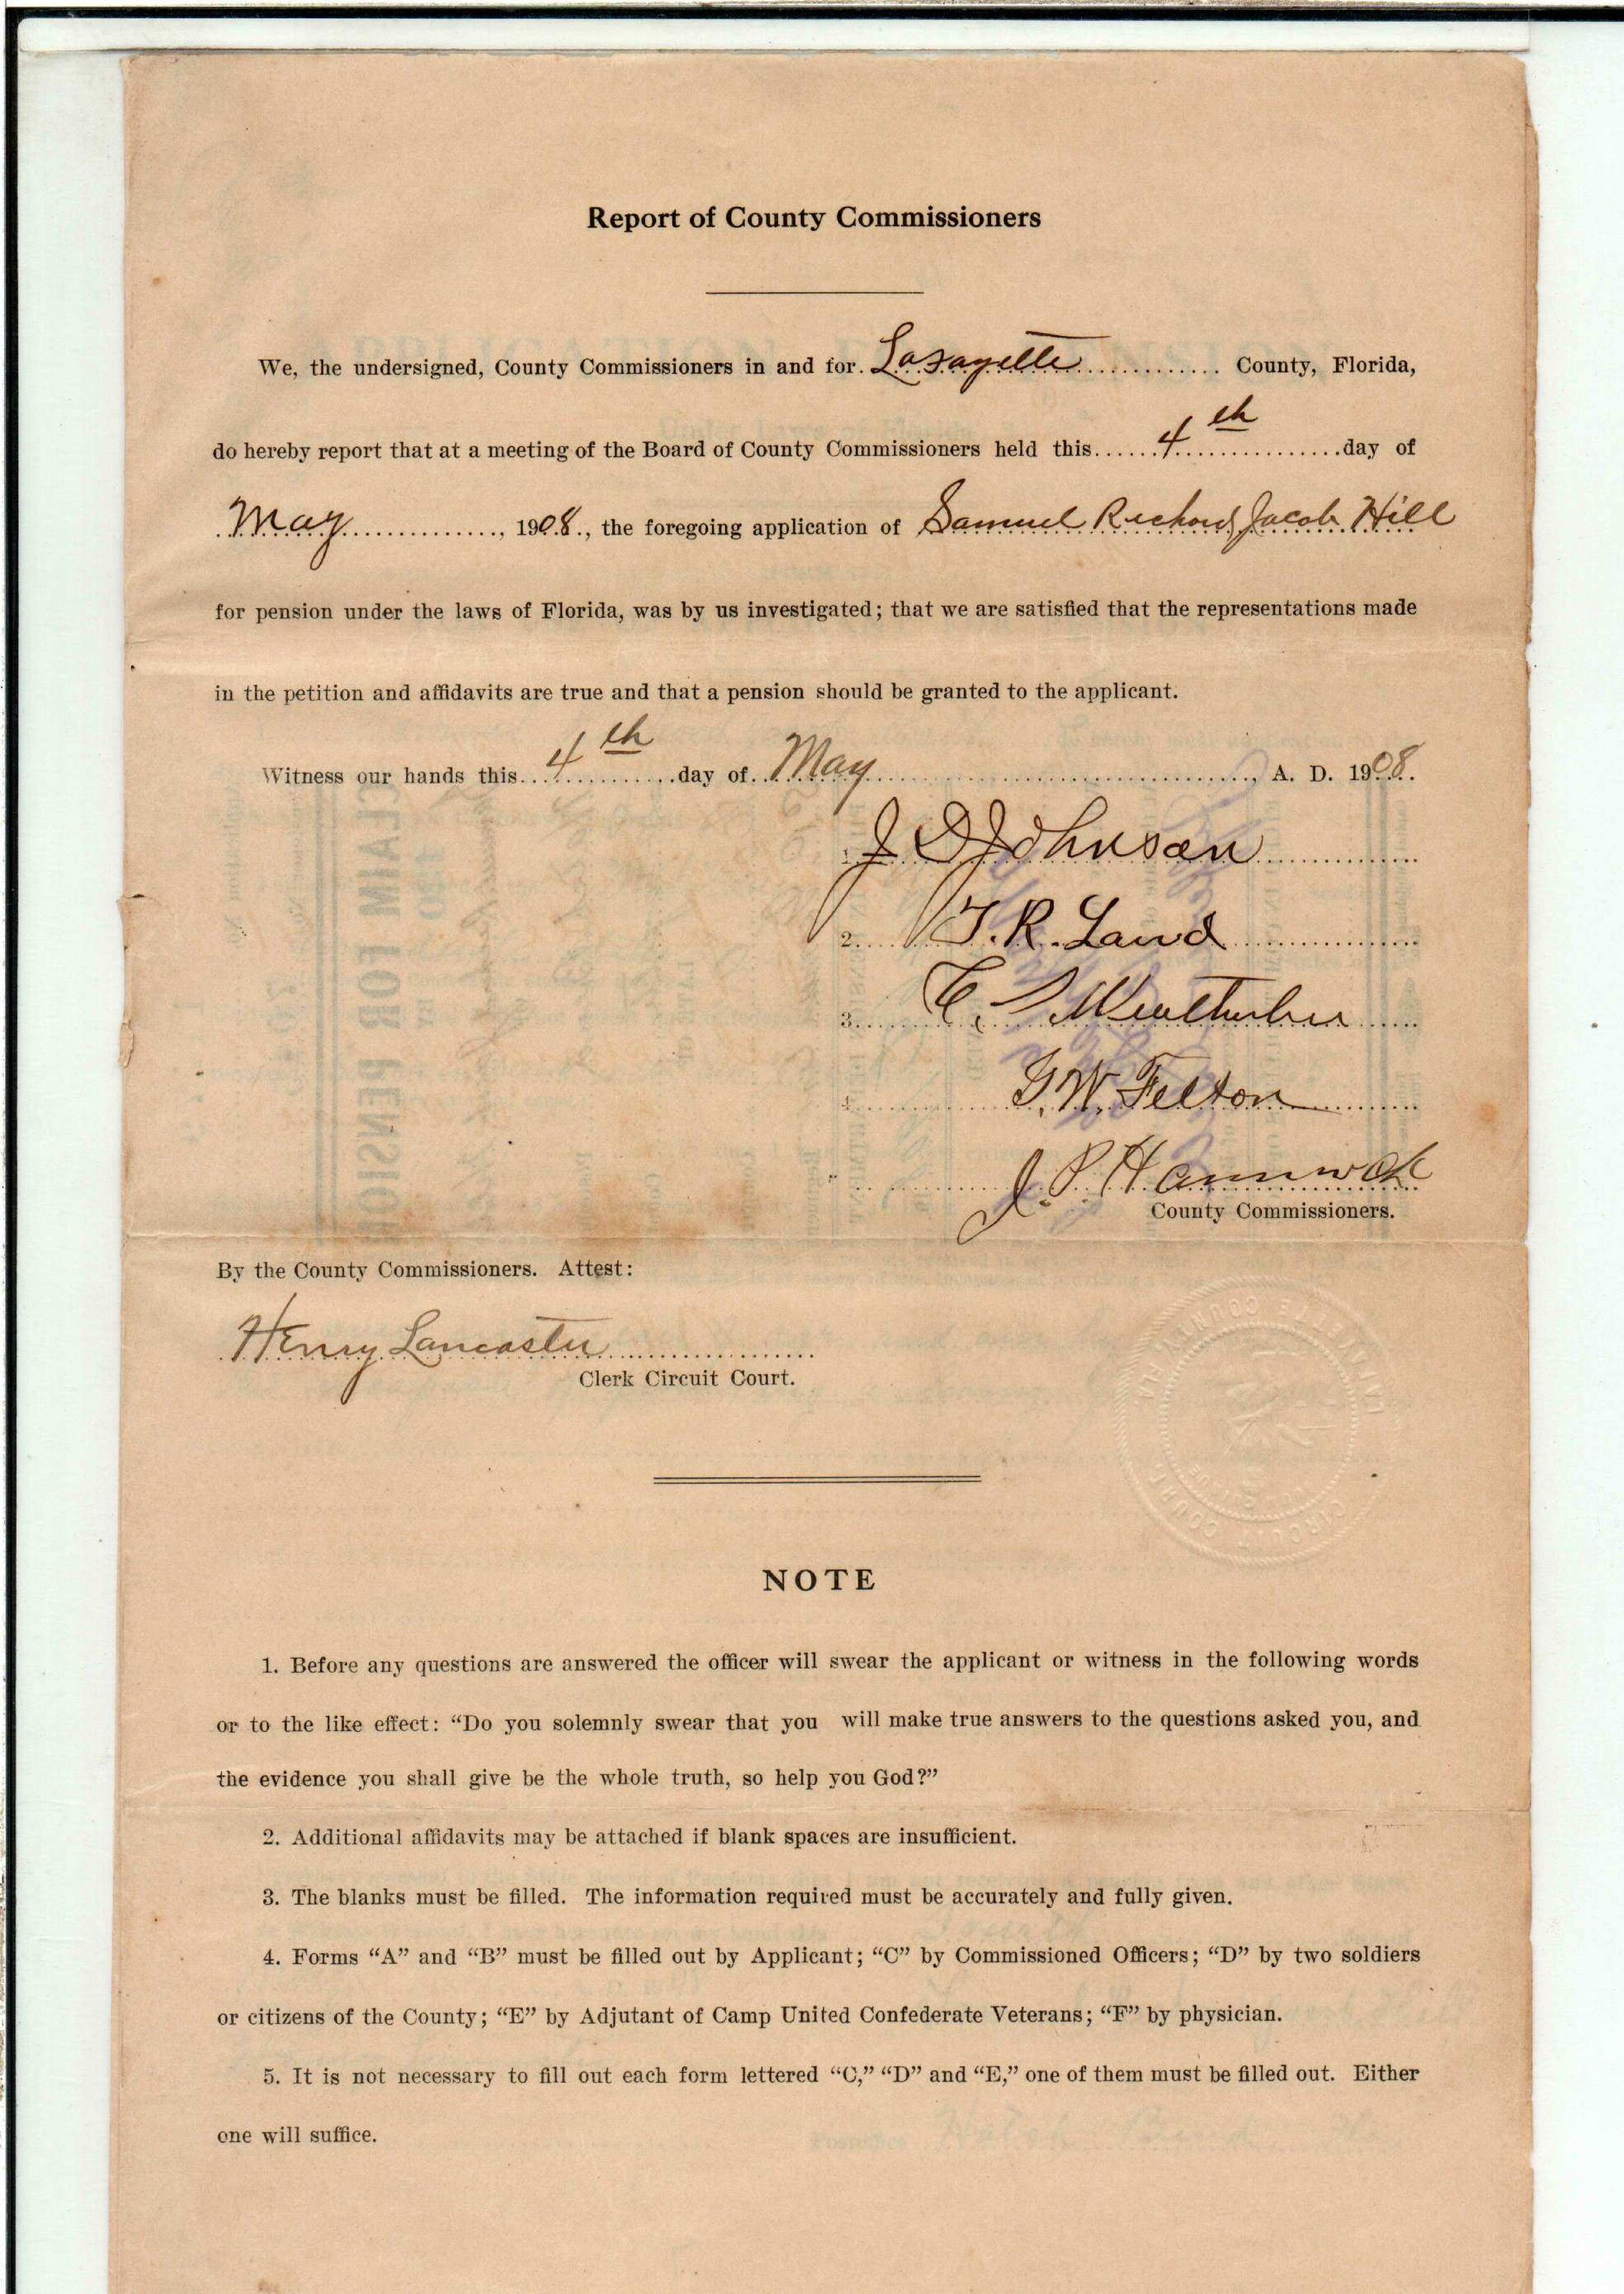 Report of County Commissioners
We, the undersigned, County Commissioners in and for Lafayette County, Florida,
do hereby report that at a meeting of the Board of County Commissioners held this 4th day of
May, 1908., the foregoing application of Samuel Richard Jacob Hill
for pension under the laws of Florida, was by us investigated; that we are satisfied that the representations made
in the petition and affidavits are true and that a pension should be granted to the applicant.
Witness our hands this 4th day of May, A. D. 1908.
J D Johnson
2. T. R. Land
3. C.
4. G. W. Felton
J. P.
County Commissioners.
By the County Commissioners. Attest:
Henry Lancaster
Clerk Circuit Court.
LAFAYETTE COUNTY, FLA.
CIRCUIT COURT
NOTE
1. Before any questions are answered the officer will swear the applicant or witness in the following words
or to the like effect: “Do you solemnly swear that you will make true answers to the questions asked you, and
the evidence you shall give be the whole truth, so help you God?”
2. Additional affidavits may be attached if blank spaces are insufficient.
3. The blanks must be filled. The information required must be accurately and fully given.
4. Forms “A” and “B” must be filled out by Applicant; “C” by Commissioned Officers; “D” by two soldiers
or citizens of the County; “E” by Adjutant of Camp United Confederate Veterans; “F” by physician.
5. It is not necessary to fill out each form lettered “C,” “D” and “E,” one of them must be filled out. Either
one will suffice.